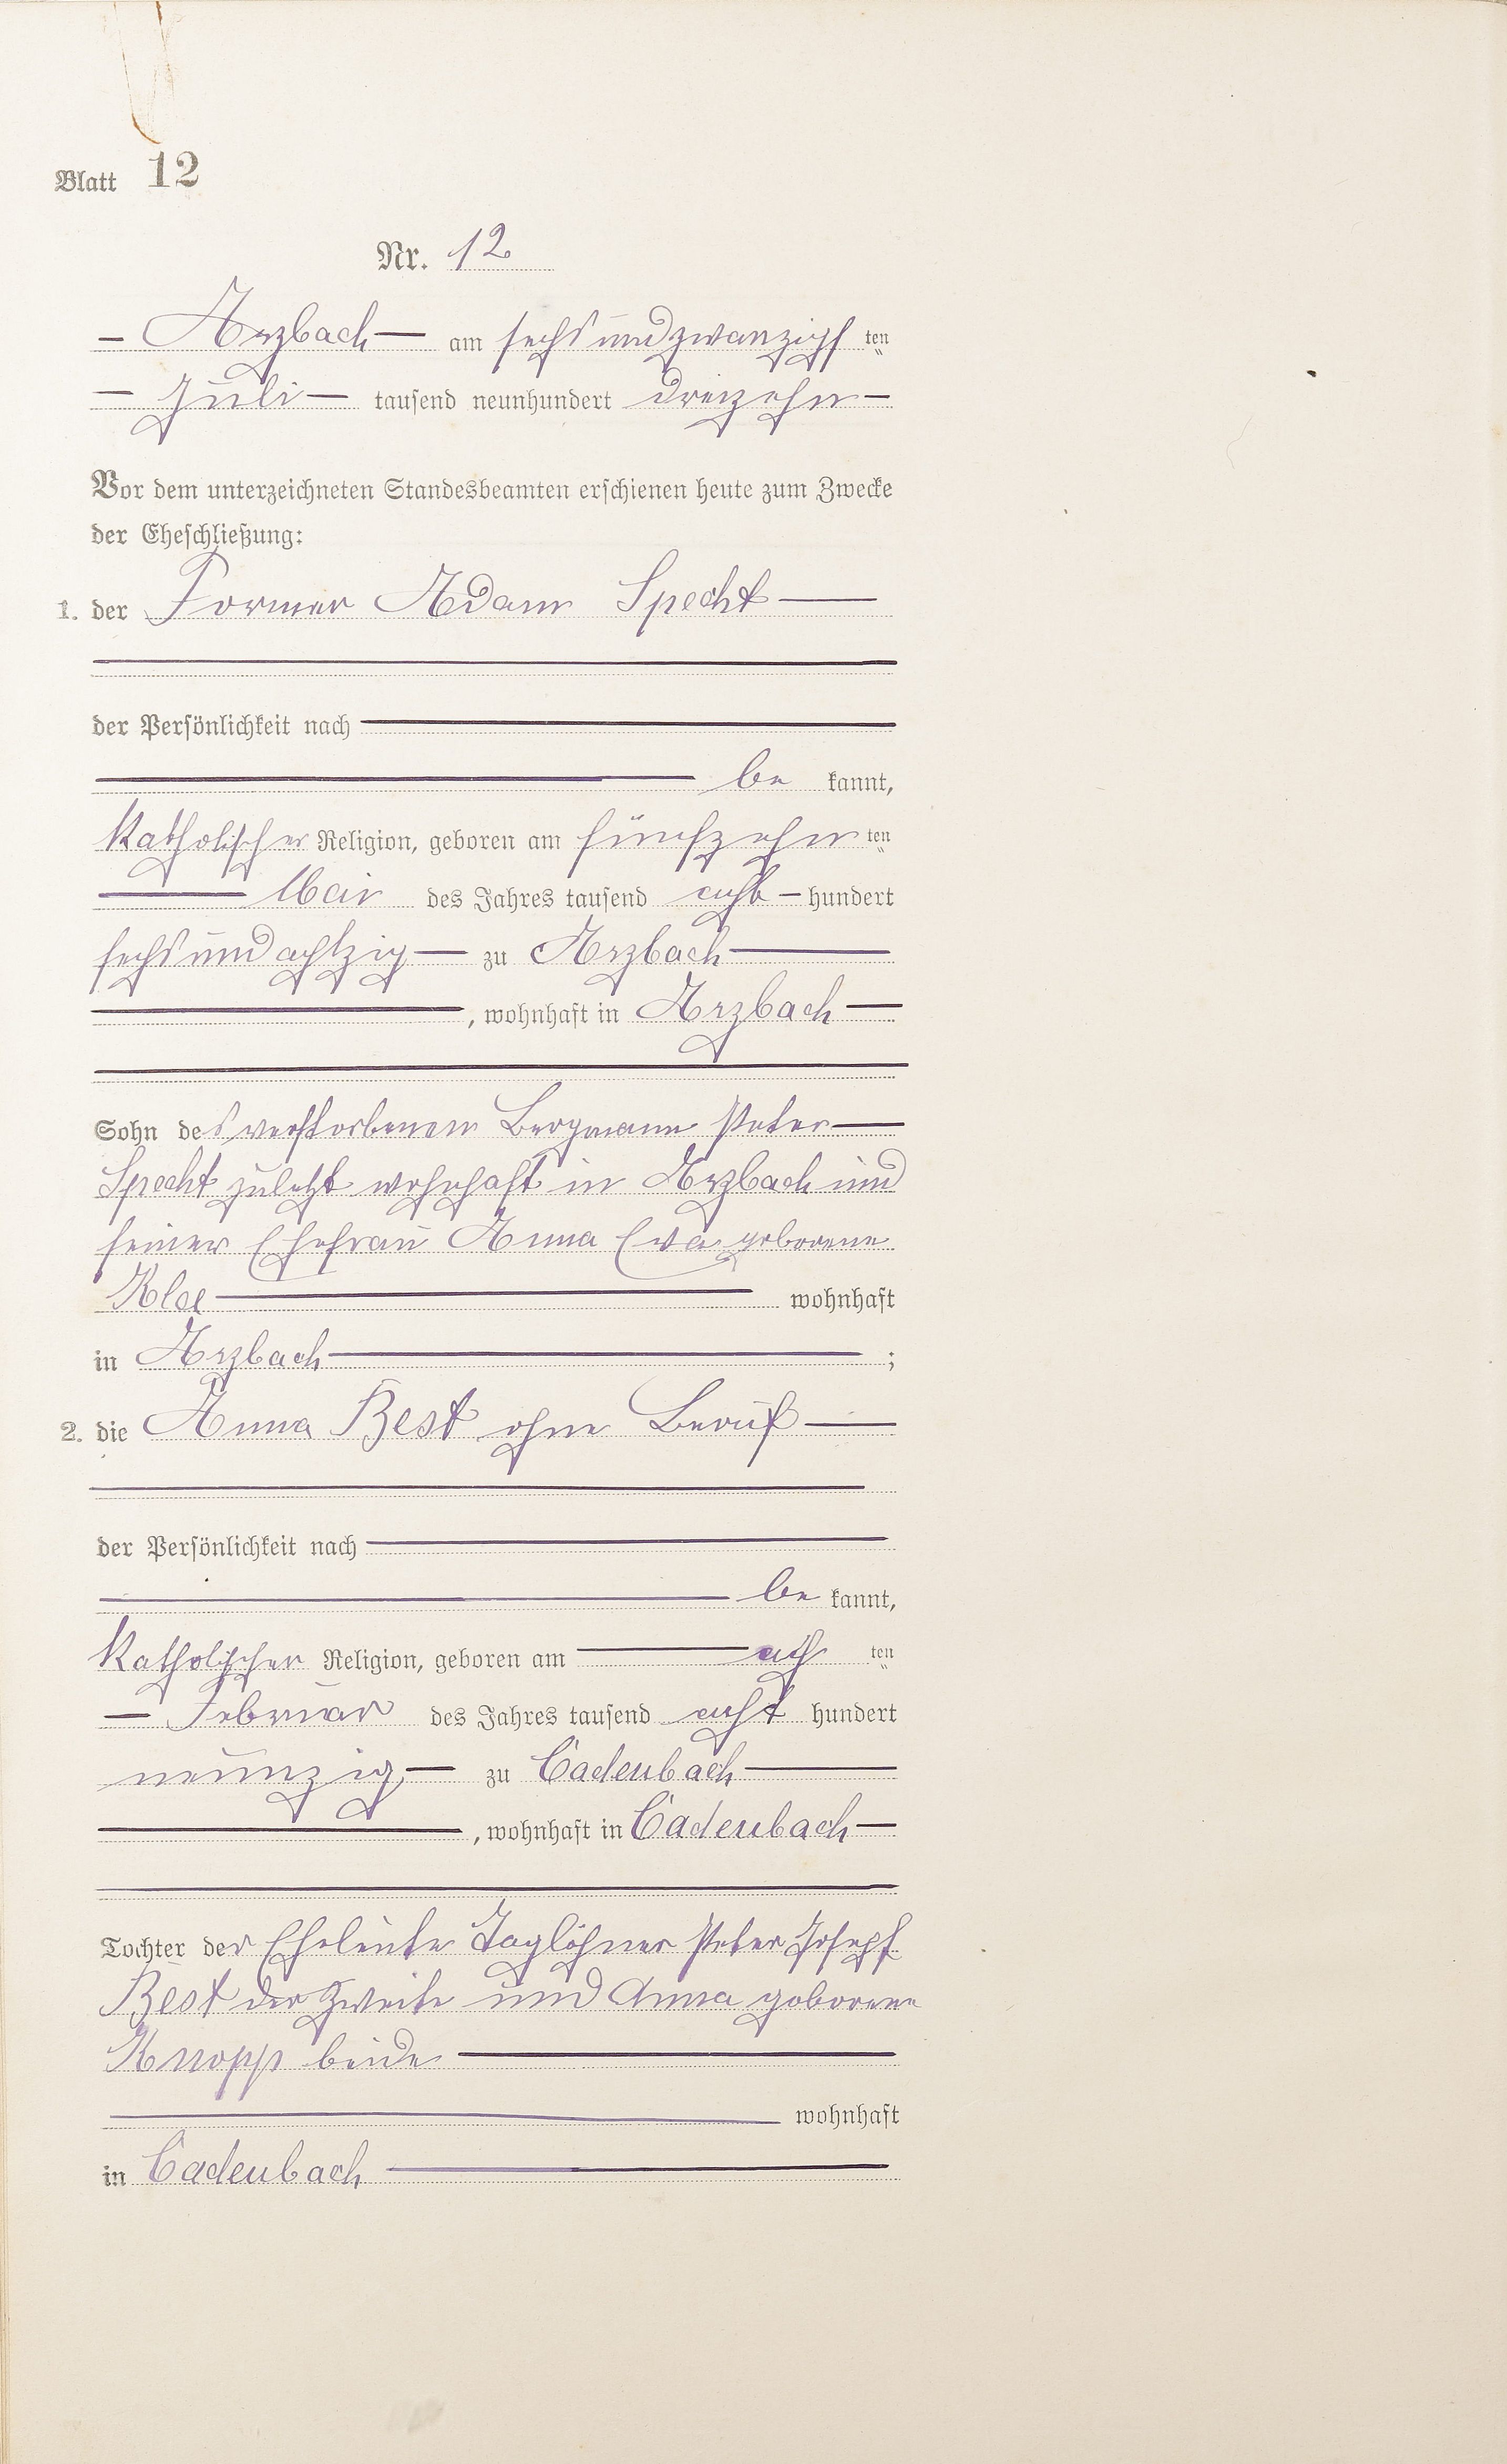 Blatt 12
Nr. 12
Arzbach am sechsundzwanzigsten
Juli tausend neunhundert dreizehn
Vor dem unterzeichneten Standesbeamten erschienen heute zum Zwecke
der Eheschließung:
1. der Former Adam Specht
der Persönlichkeit nach
be kannt,
katholischer Religion, geboren am fünfzehn ten
Mai des Jahres tausend acht hundert
sechsundachtzig zu Arzbach
, wohnhaft in Arzbach
Sohn des verstorbenen Bergmann Peter
Specht zuletzt wohnhaft in Arzbach und
seiner Ehefrau Anna Eva geborene
Klee wohnhaft
in Arzbach ;
2. die Anna Best ohne Beruf
der Persönlichkeit nach
be kannt,
katholischer Religion, geboren am ach ten
Februar des Jahres tausend acht hundert
neunzig zu Cadenbach
, wohnhaft in Cadenbach
Tochter der Eheleute Taglöhner Peter Josef
Best der Zweite und Anna geborene
Knopp beide
wohnhaft
in Cadenbach